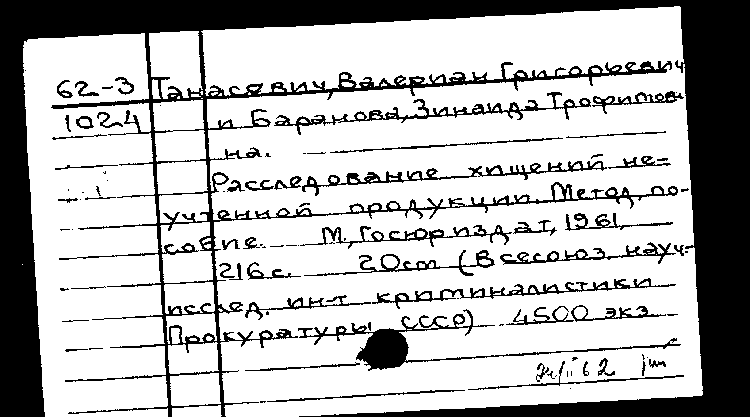 62-3 Танасевич, Валериан Григорьевич
1024 и Баранова, Зинаида Трофимов-
на.
Расследование хищений не=
учтенной продукции. Метод. по-
собие. М., Госюриздат, 1961.
216 с. 20 cm (Всесоюз. науч.-
исслед. ин-т криминалистики
Прокуратуры СССР) 4500 экз.
62